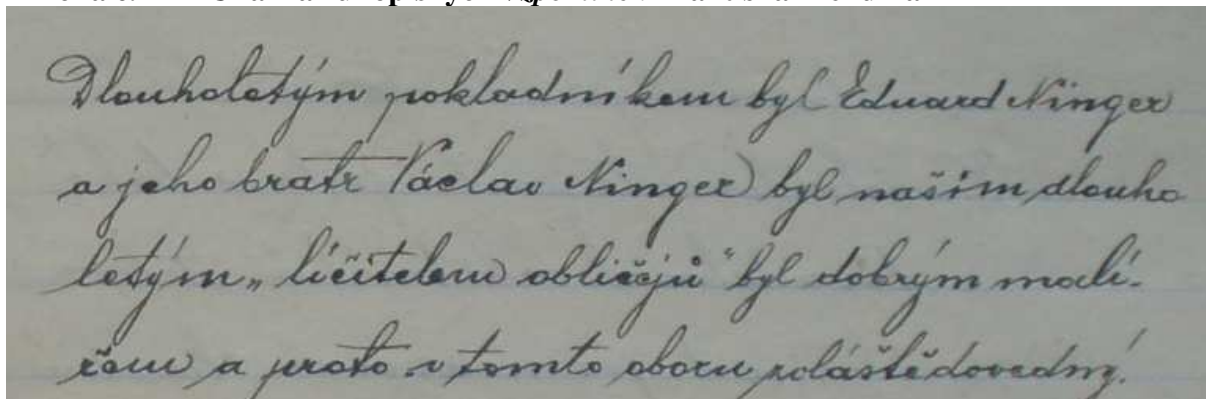 Dlouholetým pokladníkem byl Eduard Ninger
a jeho bratr Václav Ninger byl naším dlouho
letým „líčitelem obličejů" byl dobrým malí-
řem a proto v tomto oboru zvláště dovedný.